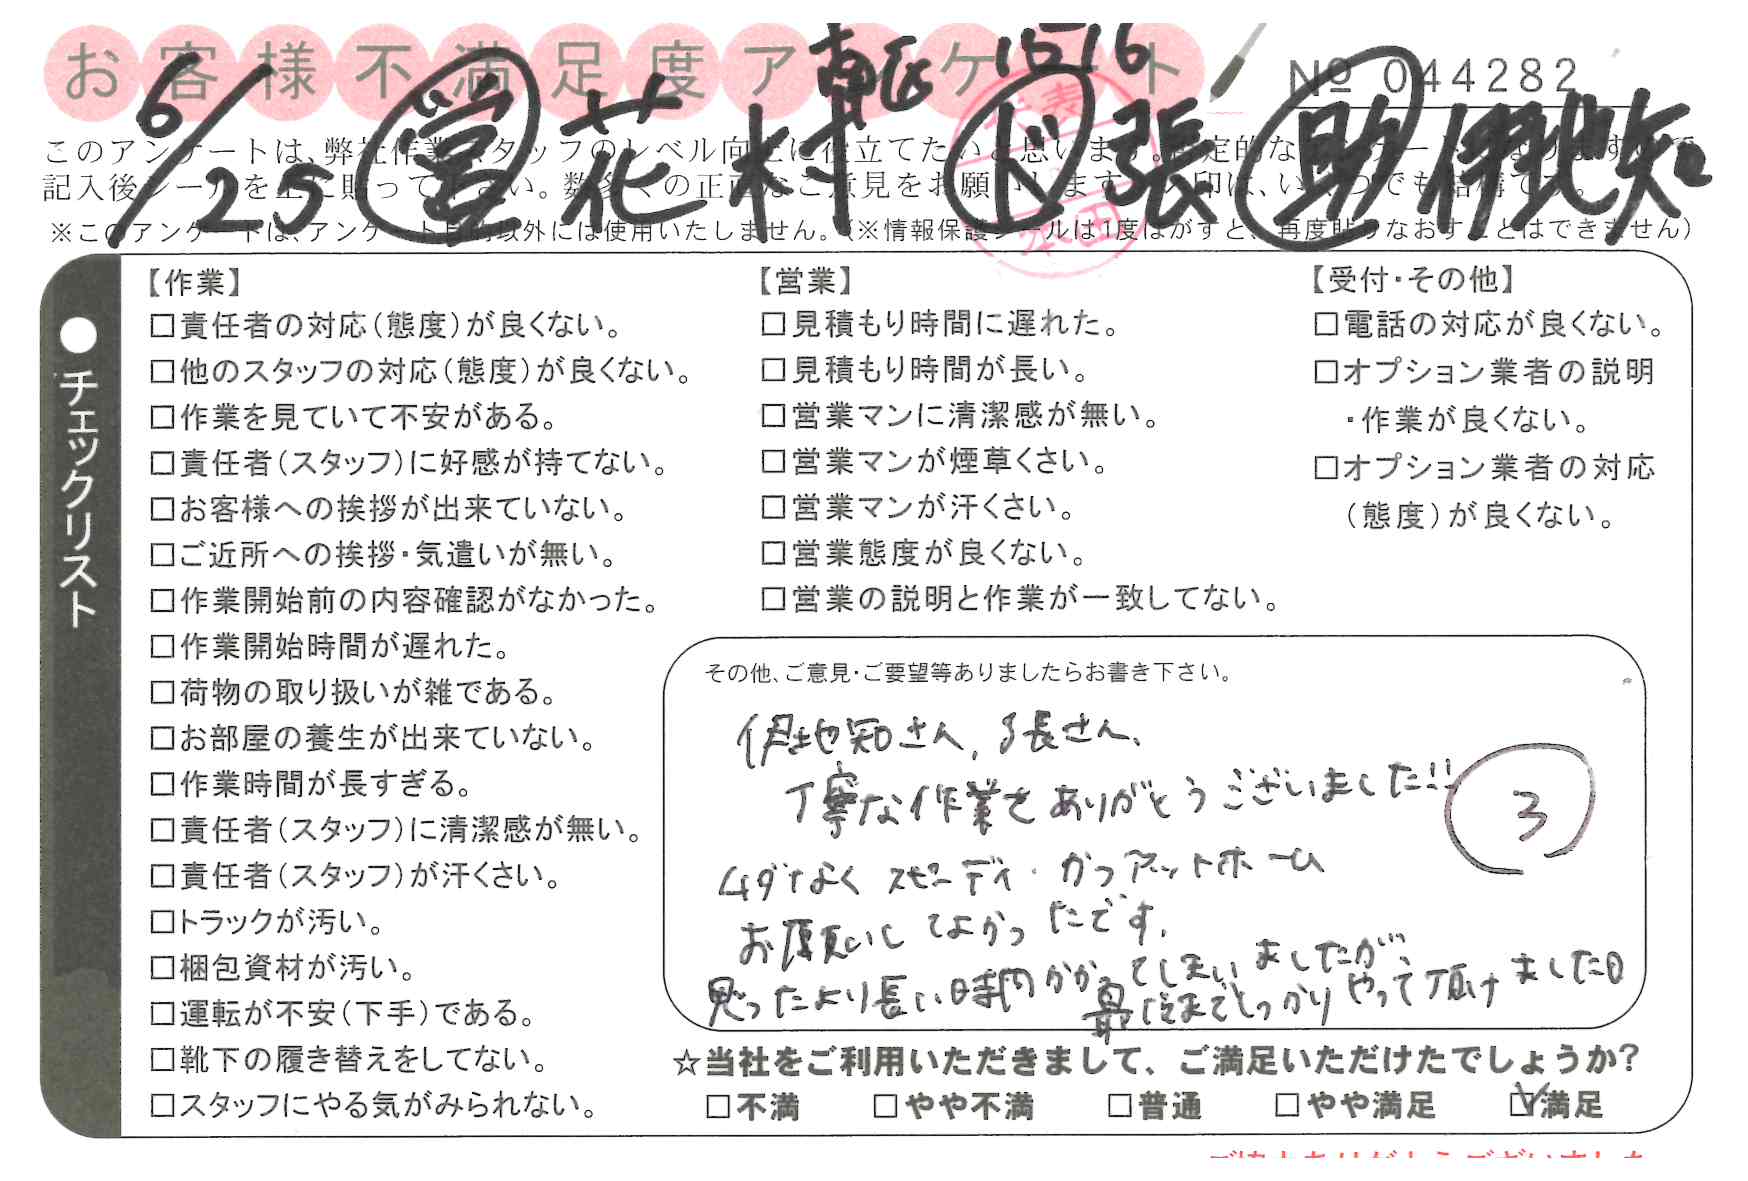 お客様不満足度アンケート
№ 044282
1516
6/25 営 花村 ド 張 助 伊地知
このアンケートは、弊社作業スタッフのレベル向上に役立てたいと思います。
記入後シールを上に貼って下さい。数多くの正直なご意見をお願いします
※このアンケートは、アンケート目的以外には使用いたしません。(※情報保護シールは1度はがすと、再度貼りなおすことはできません)
●チェックリスト
【作業】
□責任者の対応(態度)が良くない。
□他のスタッフの対応(態度)が良くない。
□作業を見ていて不安がある。
□責任者(スタッフ)に好感が持てない。
□お客様への挨拶が出来ていない。
□ご近所への挨拶・気遣いが無い。
□作業開始前の内容確認がなかった。
□作業開始時間が遅れた。
□荷物の取り扱いが雑である。
□お部屋の養生が出来ていない。
□作業時間が長すぎる。
□責任者(スタッフ)に清潔感が無い。
□責任者(スタッフ)が汗くさい。
□トラックが汚い。
□梱包資材が汚い。
□運転が不安(下手)である。
□靴下の履き替えをしてない。
□スタッフにやる気がみられない。
【営業】
□見積もり時間に遅れた。
□見積もり時間が長い。
□営業マンに清潔感が無い。
□営業マンが煙草くさい。
□営業マンが汗くさい。
□営業態度が良くない。
□営業の説明と作業が一致してない。
【受付・その他】
□電話の対応が良くない。
□オプション業者の説明
・作業が良くない。
□オプション業者の対応
(態度)が良くない。
その他、ご意見・ご要望等ありましたらお書き下さい。
伊地知さん、張さん、
丁寧な作業をありがとうございました!!
3
ムダなく スピーディ・かつアットホーム
お願いしてよかったです。
思ったより長い時間かかってしまいましたが、
最後までしっかりやって頂けました
☆当社をご利用いただきまして、ご満足いただけたでしょうか?
□不満 □やや不満 □普通 □やや満足 ☑満足
ご協力ありがとうございました